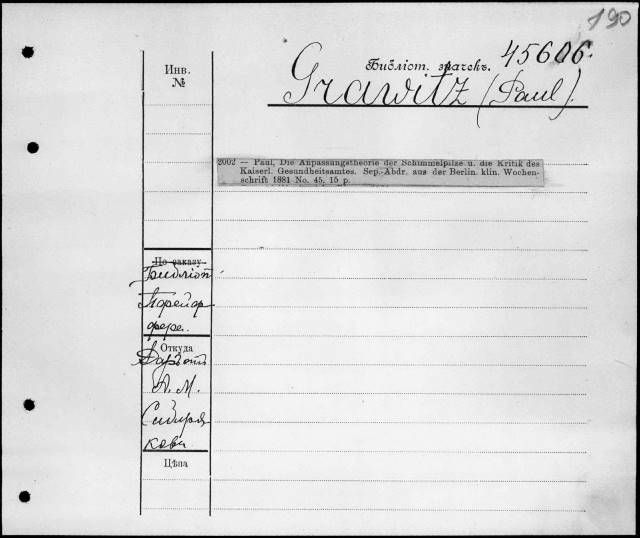 190
Инв.
№
Библіот. значекъ. 45606.
Grawitz (Paul).
2002 — Paul, Die Anpassungstheorie der Schimmelpilze u. die Kritik des
Kaiserl. Gesundheitsamtes. Sep.-Abdr. aus der Berlin. klin. Wochen-
schrift 1881 No. 45. 15 p.
По заказу
Библіот
Порейор
фера.
Откуда
Даръ отъ
А. М.
Сибиря
кова
Цѣна